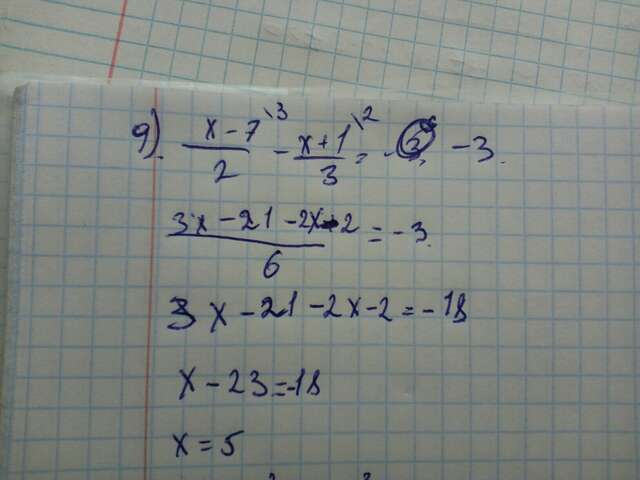 9) (x-7)/2 \3 - (x+1)/3 \2 = -3.
(3x-21-2x-2)/6 = -3.
3x-21-2x-2=-18
x-23=-18
x=5